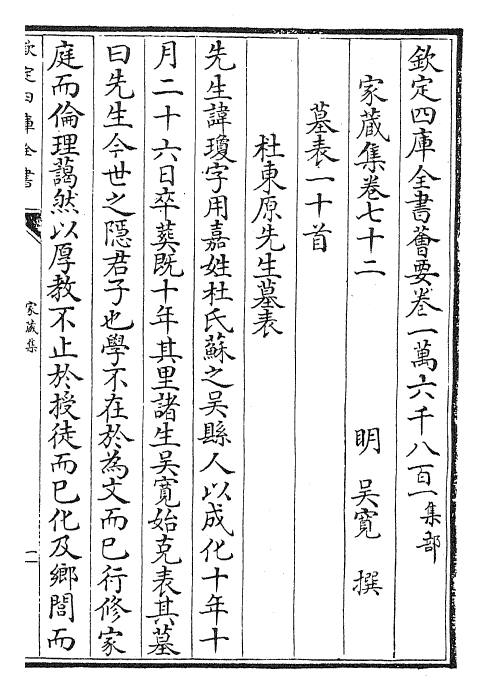 欽定四庫全書薈要卷一萬六千八百一集部
家藏集卷七十二
明 吳寬 撰
墓表一十首
杜東原先生墓表
先生諱瓊字用嘉姓杜氏蘇之吳縣人以成化十年十
月二十六日卒葬既十年其里諸生吳寬始克表其墓
曰先生今世之隱君子也學不在於為文而已行修家
庭而倫理藹然以厚教不止於授徒而已化及鄉閭而
欽定四庫全書
家藏集
一